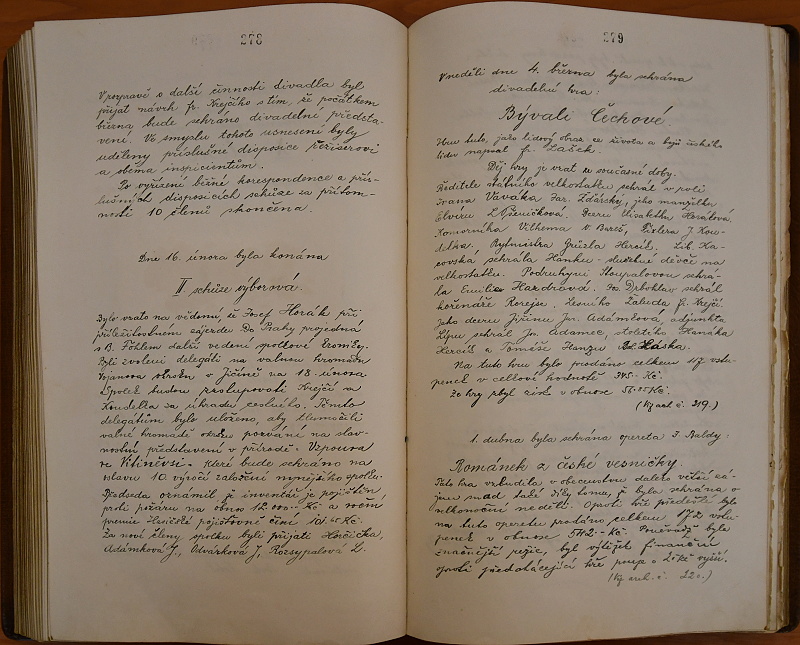 278
V rozpravě o další činnosti divadla byl
přijat návrh Fr. Krejčího s tím, že počátkem
března bude sehráno divadelní předsta-
vení. Ve smyslu tohoto usnesení byly
uděleny příslušné disposice režiserovi
a oběma inspicientům.
Po vyřízení běžné korespondence a přís-
lušných disposicích schůze za přítom-
nosti 10 členů skončena.
Dne 16. února byla konána
II schůze výborová.
Bylo vzato na vědomí, že Josef Horák při
příležitostném zájezdu do Prahy projedná
s B. Föklem další vedení spolkové kroniky.
Byli zvoleni delegáti na valnou hromadu
okrsku v Jičíně na 18. února
Spolek budou zastupovati Krejčí a
Koudelka za úhradu cestného. Těmto
delegátům bylo uloženo, aby tlumočili
valné hromadě okrsku pozvání na slav-
nostní představení v přírodě - Vzpoura
ve Ktiněvsi - které bude sehráno na
oslavu 10. výročí založení nynějšího spolku.
Předseda oznámil že inventář je pojištěn
proti požáru na obnos 12.000.- Kč a roční
premie Hasičské pojišťovně činí 101.45 Kč.
Za nové členy spolku byli přijati Horčička,
Adámková J., Odvárková J., Rozsypalová L.
279
V neděli dne 4. března byla sehrána
divadelní hra:
Bývali Čechové.
Hru tuto, jako lidový obraz ze života a bojů českého
lidu napsal Fr. Lašek.
Děj hry je vzat ze současné doby.
Ředitele státního velkostatku sehrál v roli
Ivana Vaváka Jar. Žďárský, jeho manželku
Elviru L. Pšeničková. Dceru Elisabethu Horáková.
Komorníka Vilhema V. Bareš, Fixlera J. Kou-
delka. Rytmistra Grüzla Hercík. Lib. Ka-
sehrála Hanku - služebné děvče na
velkostatku. Podruhyni Stoupalovou sehrá-
la Emilie Hazdrová. Jos. Drbohlav sehrál
kořenáře Rorejse. Lesního Žaluda Fr. Krejčí.
Jeho dceru Jiřinu Jar. Adámková, adjunkta
Lípu sehrál Jos. Adamec, stoletého Hanáka
Hercík a Tomáše Hanzu Háska.
Na tuto hru bylo prodáno celkem 117 vstu-
penek v celkové hodnotě 345.- Kč.
Ze hry zbyl zisk v obnose 51.85 Kč.
(Viz arch. č. 219.)
1. dubna byla sehrána opereta J. Baldy:
Románek z české vesničky.
Tato hra vzbudila v obecenstvu daleko větší zá-
jem snad také díky tomu, že byla sehrána o
velkonoční neděli. Oproti hře předešlé bylo
na tuto operetu prodáno celkem 172 vstu-
penek v obnose 542.- Kč. Poněvadž byla
značnější režie, byl výtěžek finanční
oproti předcházející hře pouze o 2 Kč vyšší.
(Viz arch. č. 220.)